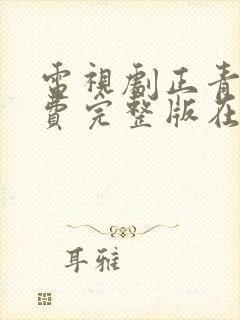 電視劇正青
費完整版在
耳雅